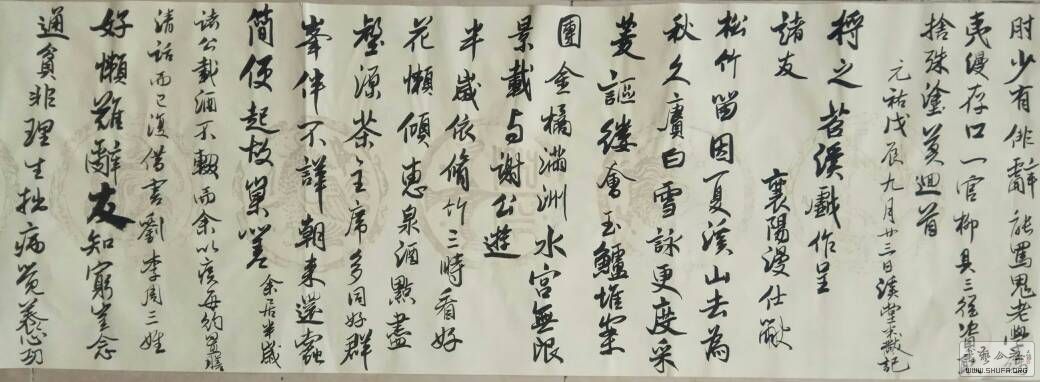 肘少有俳辭能罵鬼老學
夷漫存口一官聊具三徑資
捨殊塗莫迴首
元祐戊辰九月廿三日溪堂米黻記
將之苕溪戲作呈
諸友
襄陽漫仕黻
松竹留因夏溪山去為
秋久賡白雪詠更度采
菱謳縷會玉鱸堆案
團金橘滿洲水宮無限
景載與謝公遊
半歲依脩竹三時看好
花懶傾惠泉酒點盡
壑源茶主席多同好群
峯伴不譁朝來還蠹
簡便起故巢嗟 余居半歲
諸公載酒不輟而余以疾每約置膳
清話而已復借書劉李周三姓
好懶難辭友知窮豈念
通貧非理生拙病覺養心功
WWW.SHUFA.ORG